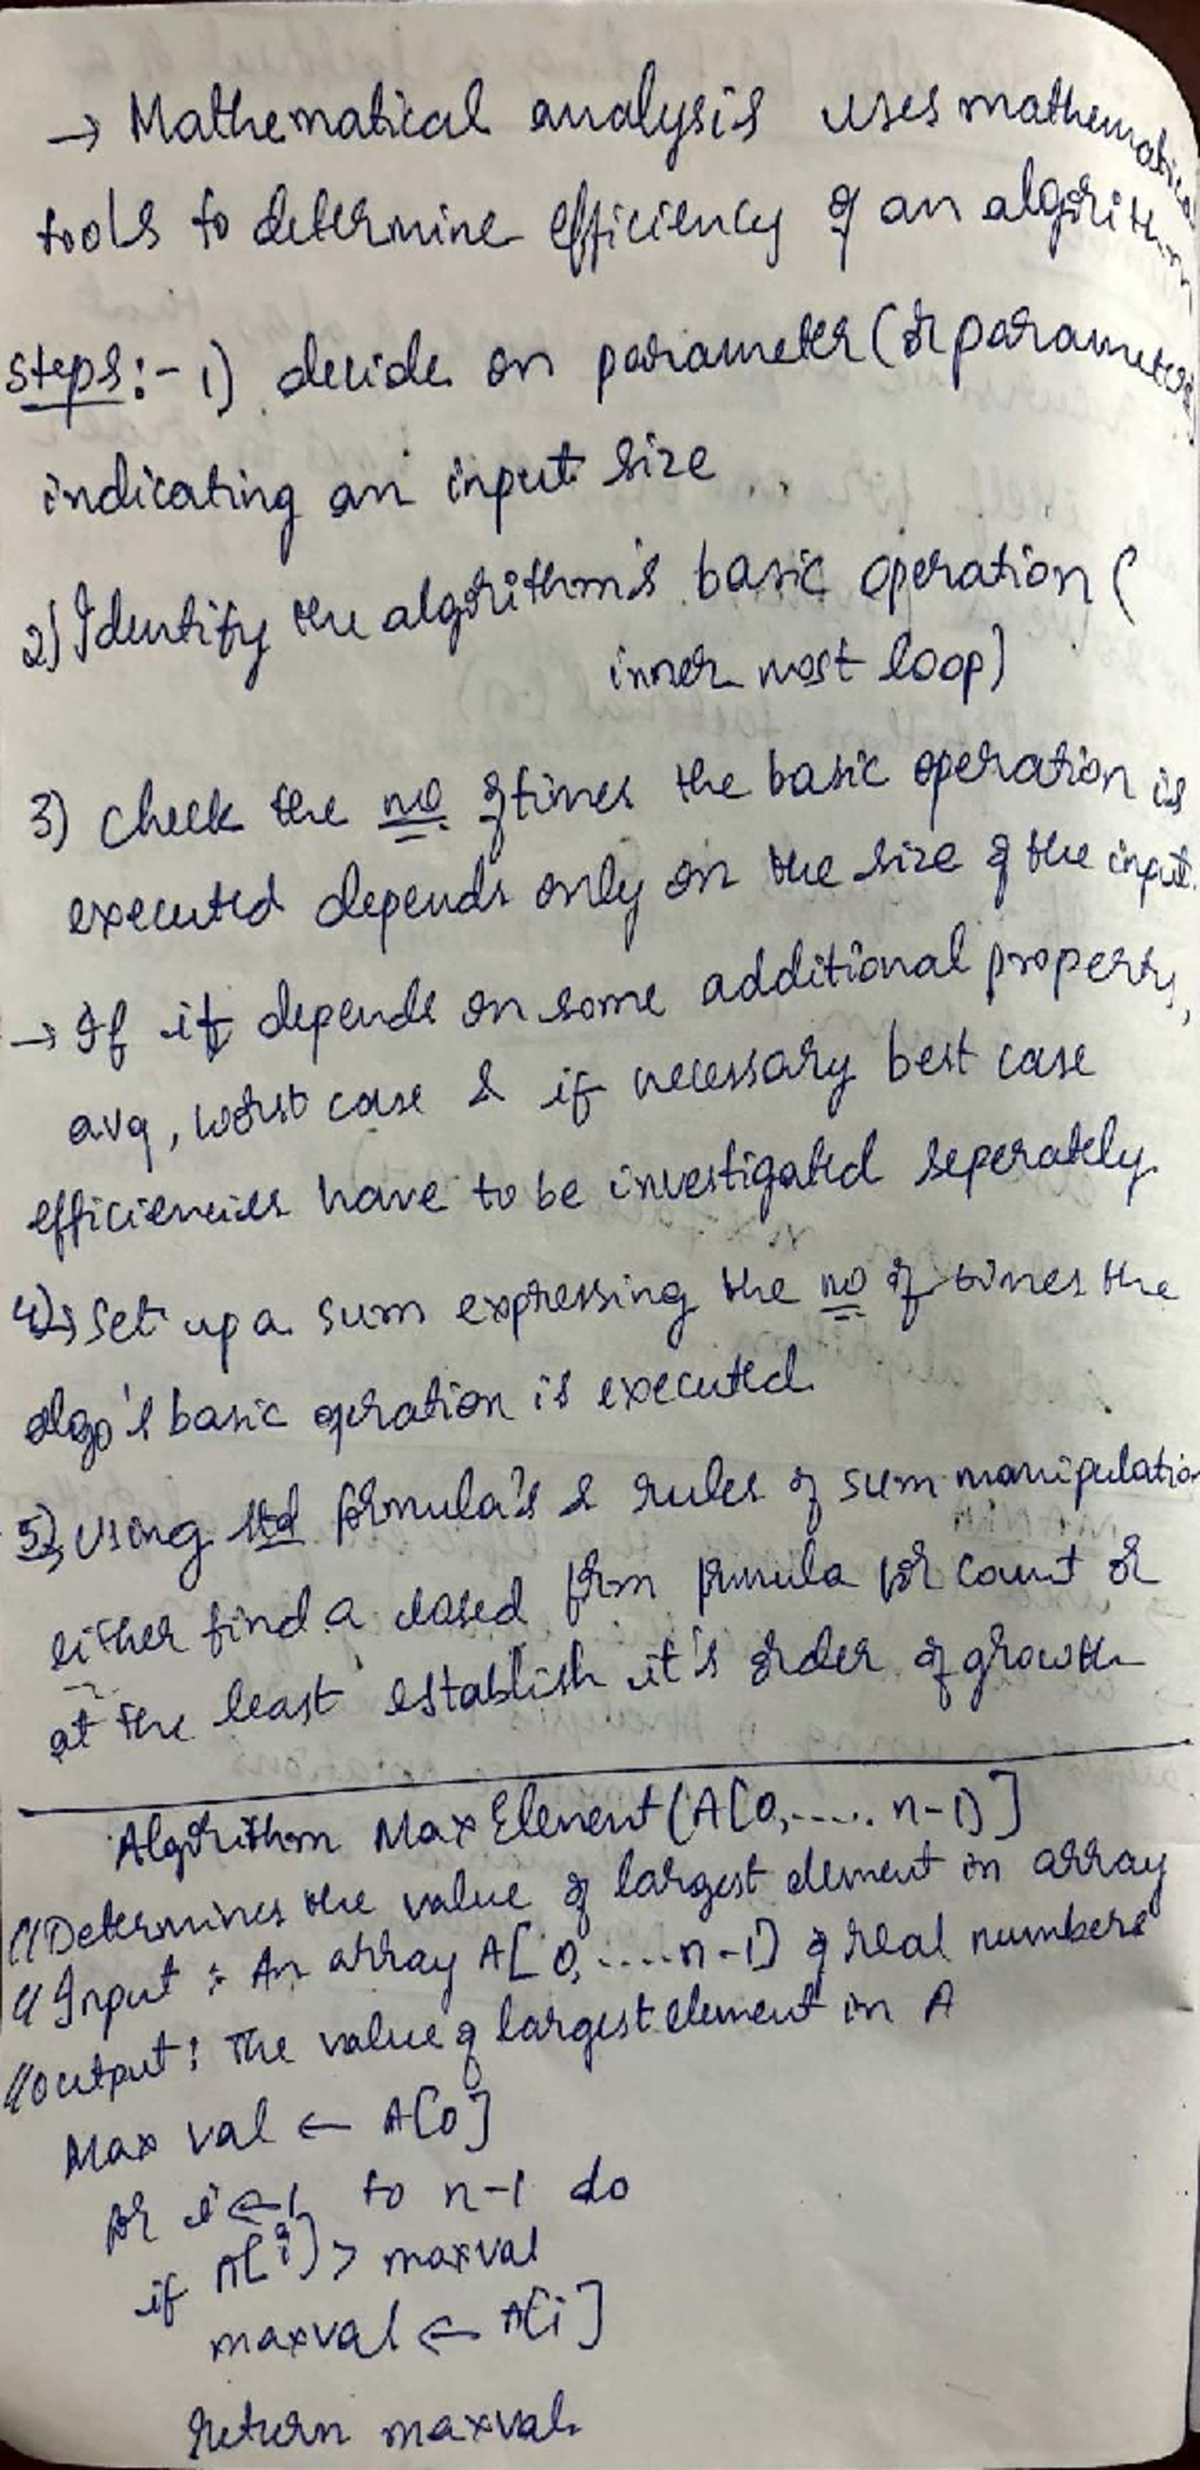 → Mathematical analysis uses mathematical
tools to determine efficiency of an algorithm
Steps:- 1) decide on parameter (or parameters
indicating an input size
2) Identify the algorithm's basic operation (
inner most loop)
3) Check the no. of times the basic operation is
executed depends only on the size of the input.
→ If it depends on some additional property,
avg, worst case & if necessary best case
efficiencies have to be investigated seperately.
4) Set up a sum expressing the no of times the
algo's basic operation is executed.
5) Using std formula's & rules of sum manipulation
either find a closed form formula for count or
at the least establish it's order of growth
Algorithm MaxElement(A[0,..... n-1)]
//Determines the value of largest element in array
// Input : An array A[0,.....n-1] of real numbers
//Output : The value of largest element in A
Max val ← A[0]
for i ← 1 to n-1 do
if A[i] > maxval
maxval ← A[i]
return maxval.